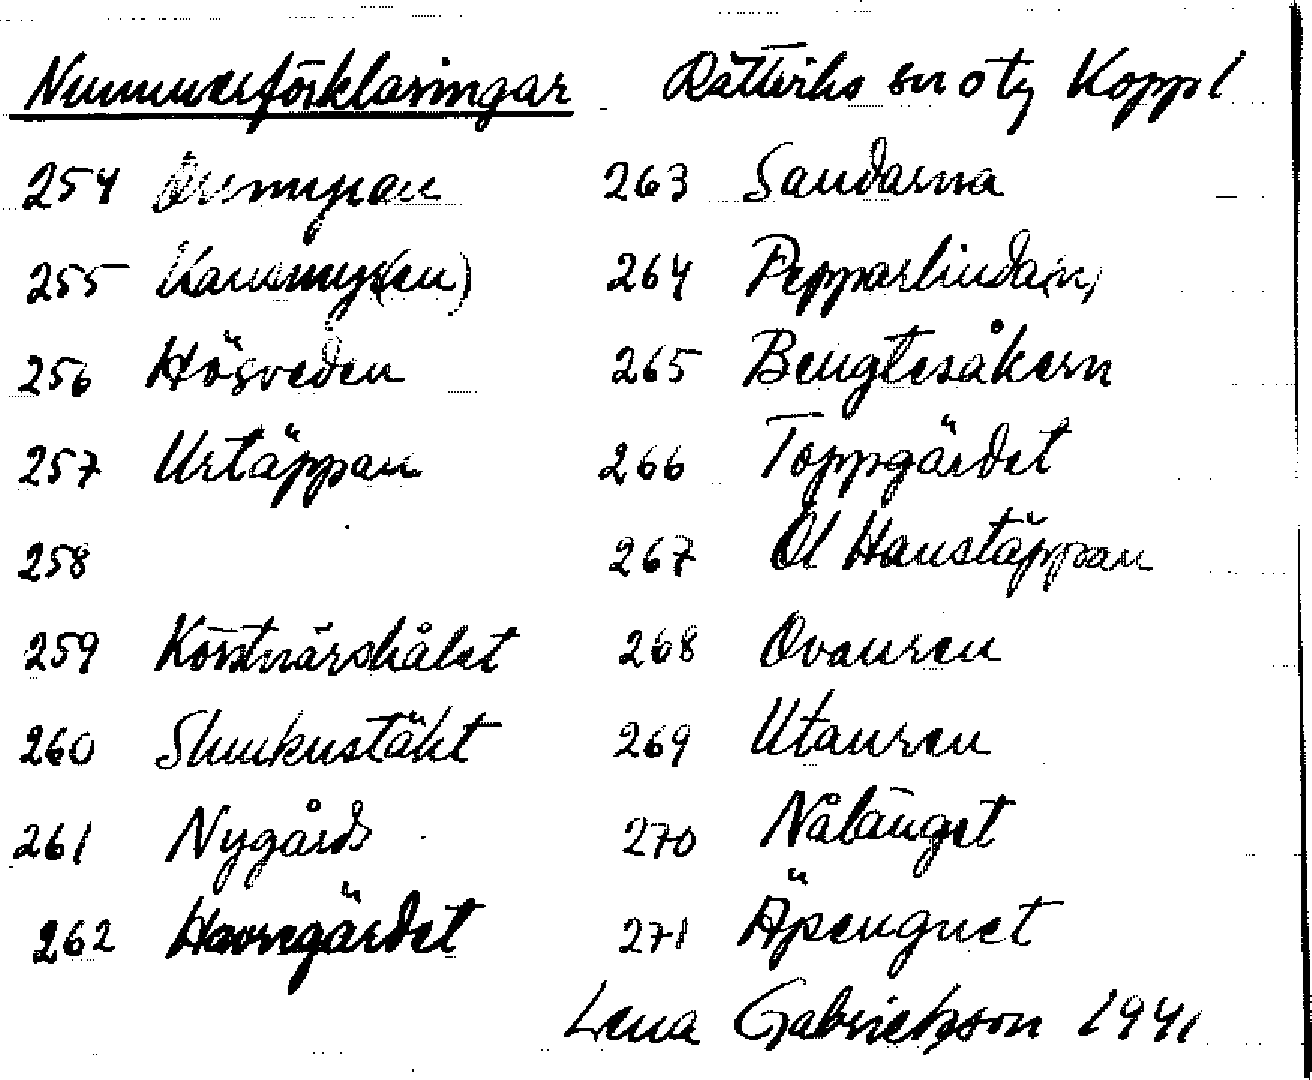 Nummerförklaringar Rättviks sn o tg Kopp l
254 Örmyran
255 Kansmyr(en)
256 Högsveden
257 Urtäppan
258
259 Körtnärshålet
260 Slunkustäkt
261 Nygårds
262 Havregärdet
263 Sandarna
264 Pepparlinda(n)
265 Bengtesåkern
266 Toppgärdet
267 Ol Hanstäppan
268 Ovanren
269 Utanren
270 Nålänget
271 Äpengnet
Lena Gabrielsson 1941